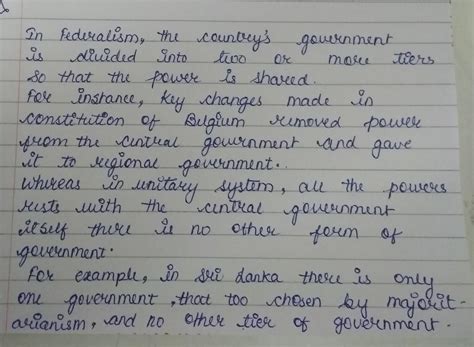 In Federalism, the country's government
is divided into two or more tiers
so that the power is shared.
For instance, key changes made in
constitution of Belgium removed power
from the central government and gave
it to regional government.
Whereas in unitary system, all the powers
rests with the central government
itself there is no other form of
government.
For example, in Sri Lanka there is only
one government, that too chosen by majorit-
arianism, and no other tier of government.